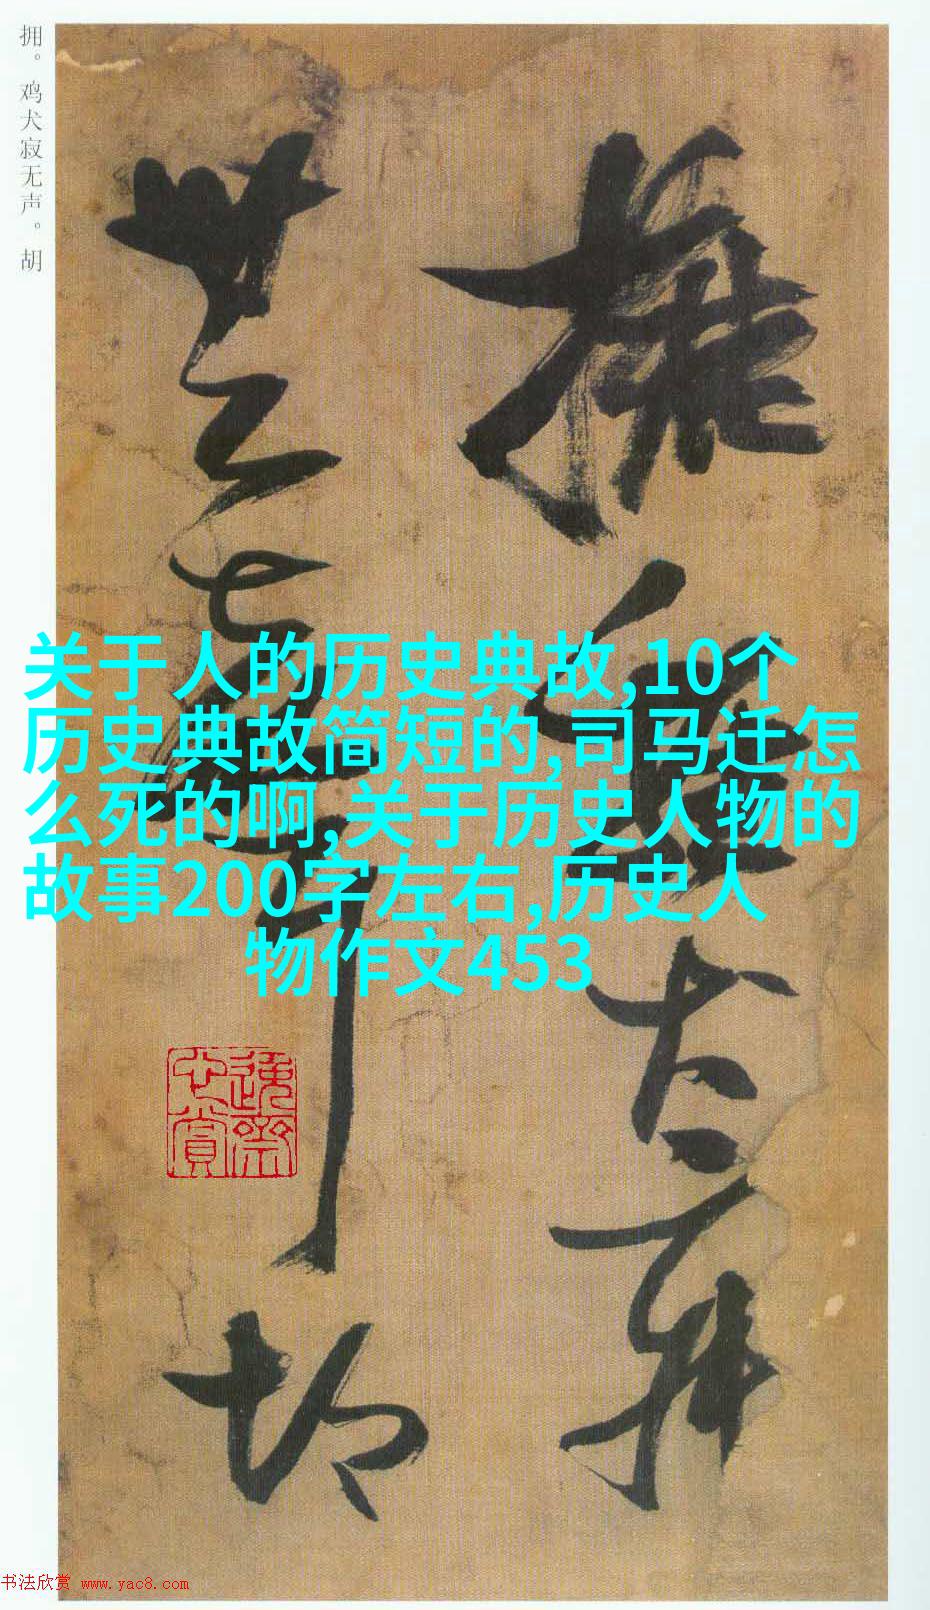 拥。鸡犬寂无声。胡
擁鸡犬寂
无声胡
关于人的历史典故,10个
历史典故简短的,司马迁怎
么死的啊,关于历史人物的
故事200字左右,历史人
物作文453
书法欣赏 www.yac8.com